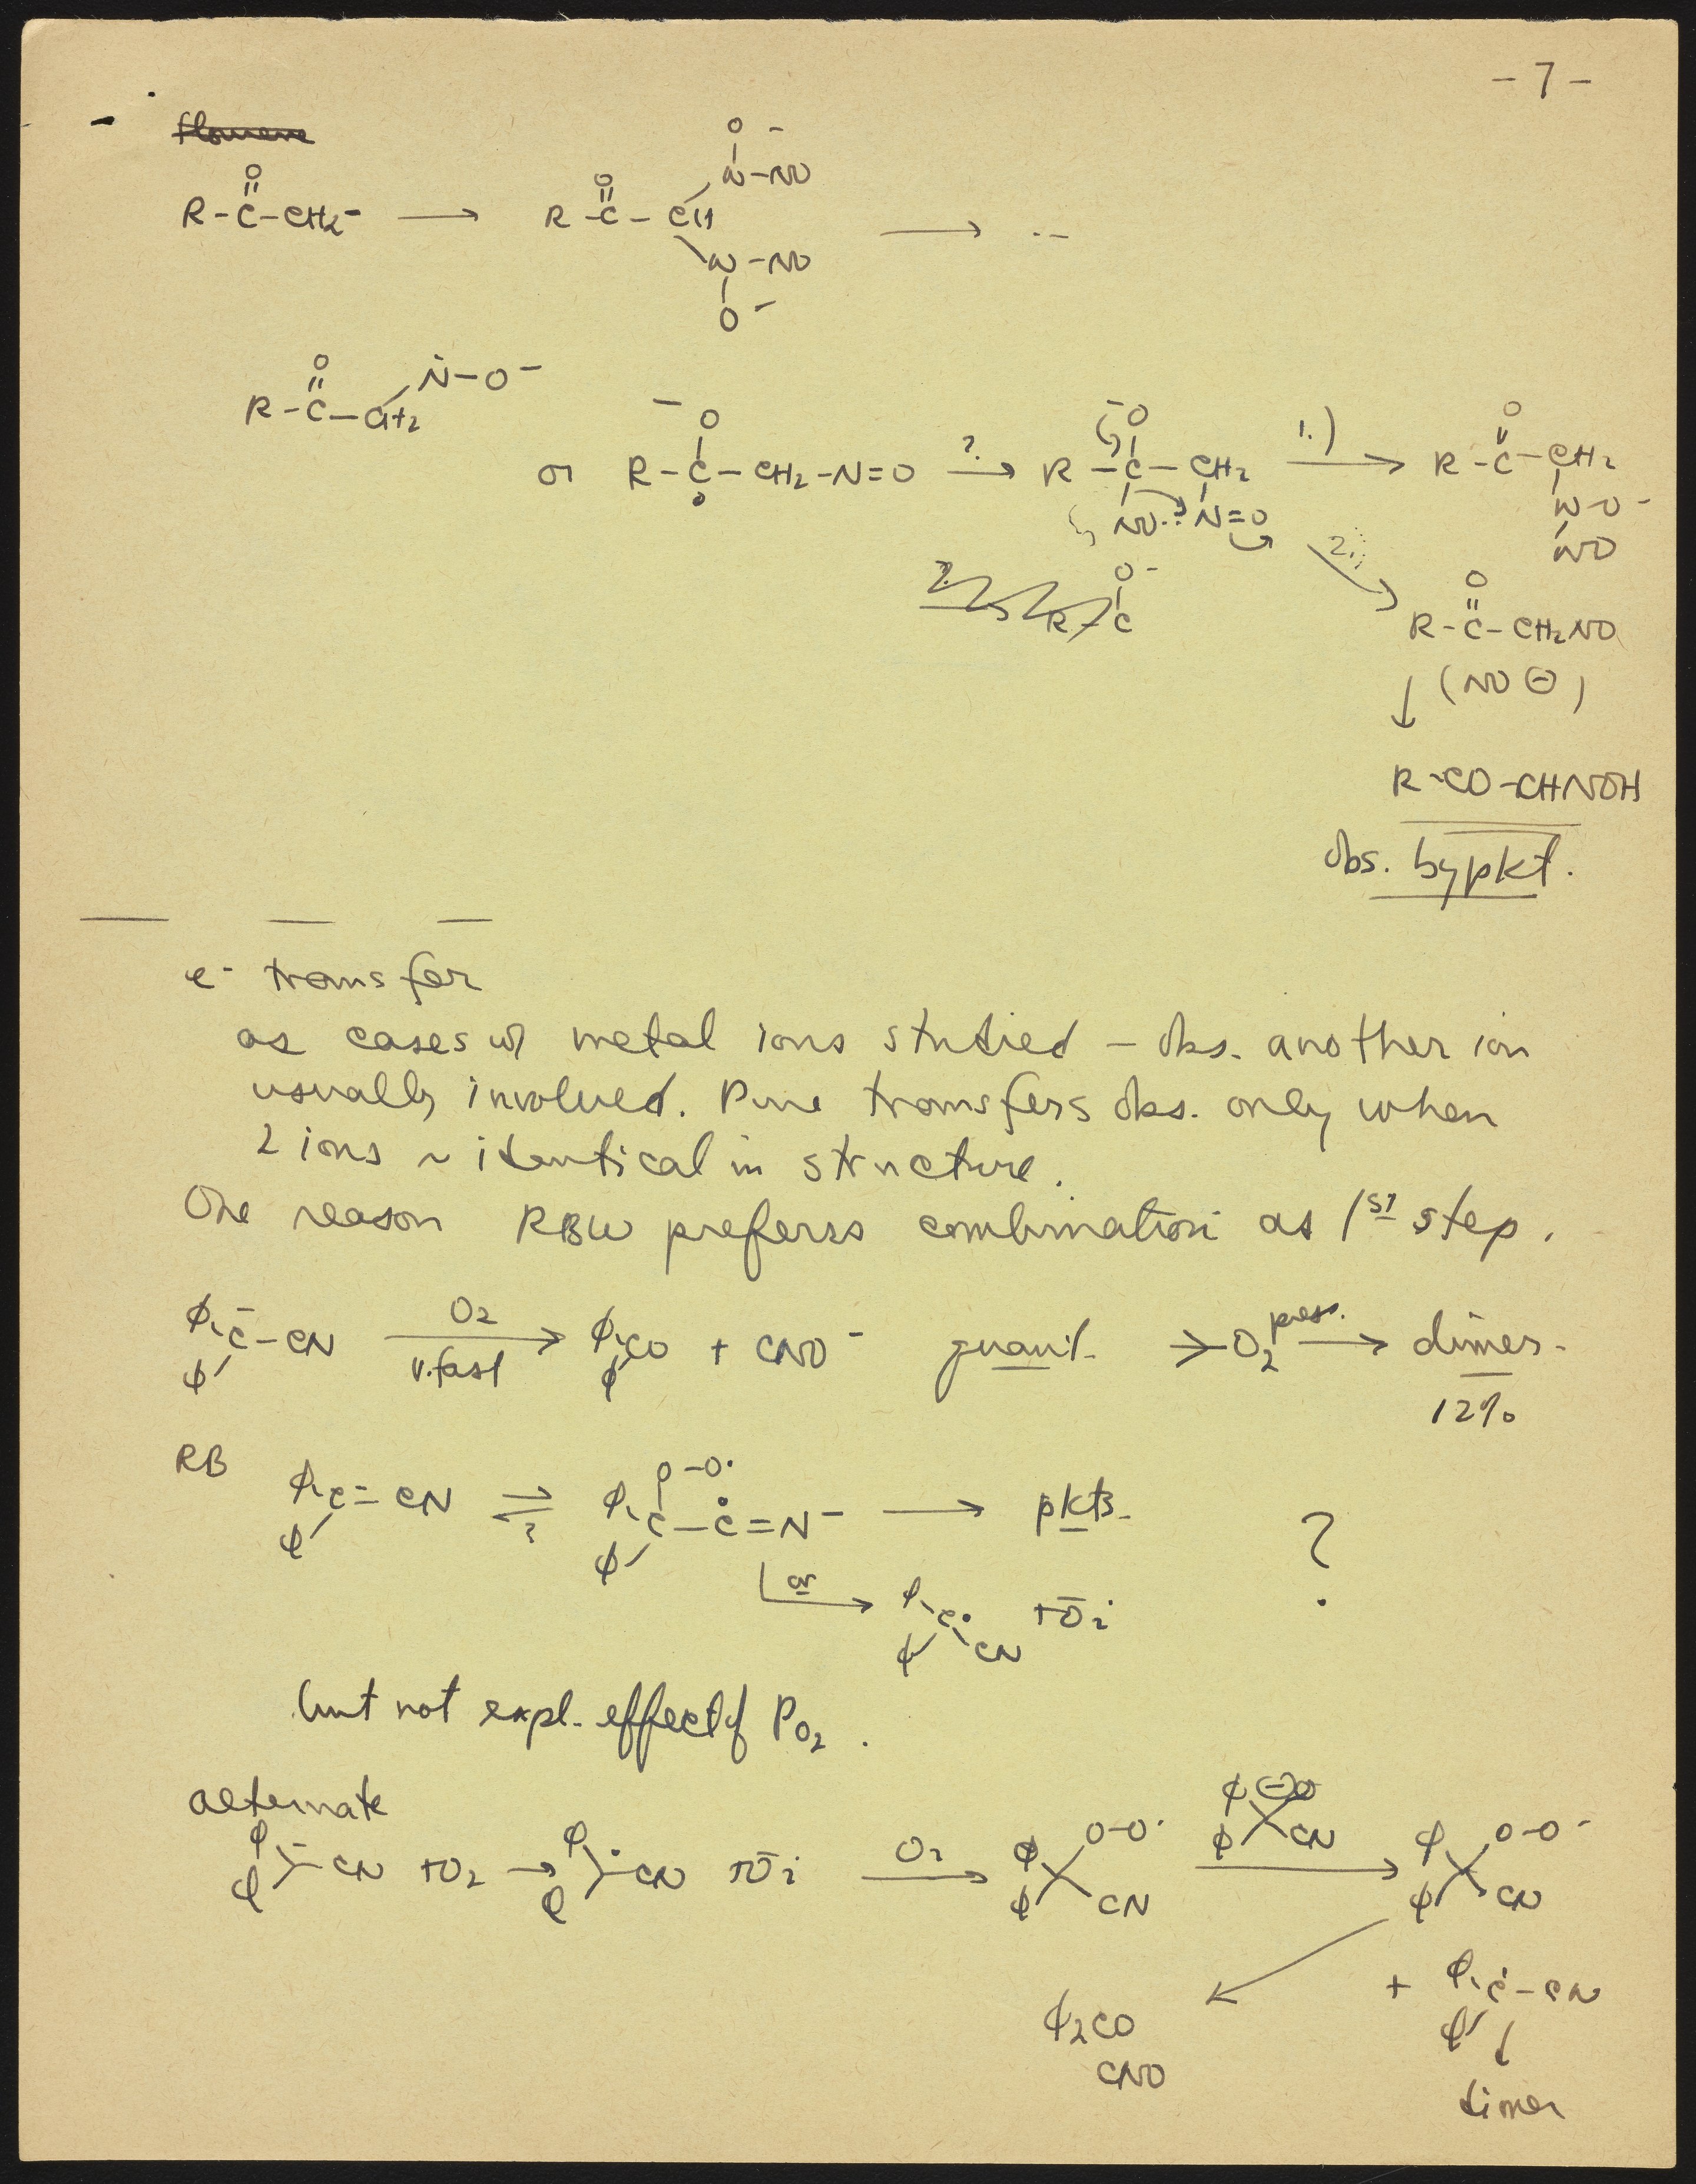 - 7 -
R-C-CH2⁻ → R-C-CH → --
O
O
O ⁻
N-NO
N-NO
O ⁻
R-C-CH2
O
Ṅ-O⁻
or R-C-CH2-N=O ?→ R-C-CH2 1.)→ R-C-CH2
⁻O
⁻O
O
NO N=O
N-O⁻
NO
2.
? R-C
O⁻
O
R-C-CH2NO
↓ (NO ⊖)
R-CO-CHNOH
obs. bypkt.
e⁻ transfer
as cases w/ metal ions studied - obs. another ion
usually involved. Pure transfers obs. only when
2 ions ~ identical in structure.
One reason RBW prefers combination as 1st step.
ϕ
ϕ C̄-CN O2→ v. fast ϕ
ϕ CO + CNO⁻ quant. > O2 press. → dimer.
12%
RB
ϕ
ϕ C̄-CN ⇌ ? ϕ
ϕ C-Ċ=N⁻ → pkts. ?
O-O·
or → ϕ
ϕ Ċ-CN + Ō2
but not expl. effect of PO2.
alternate
ϕ
ϕ ⁻CN + O2 → ϕ
ϕ ·CN + Ō2 O2→ ϕ
ϕ O-O· CN ϕ
ϕ ⊖ CN → ϕ
ϕ O-O⁻ CN
ϕ2CO
CNO
+ ϕ
ϕ Ċ-CN
↓
dimer